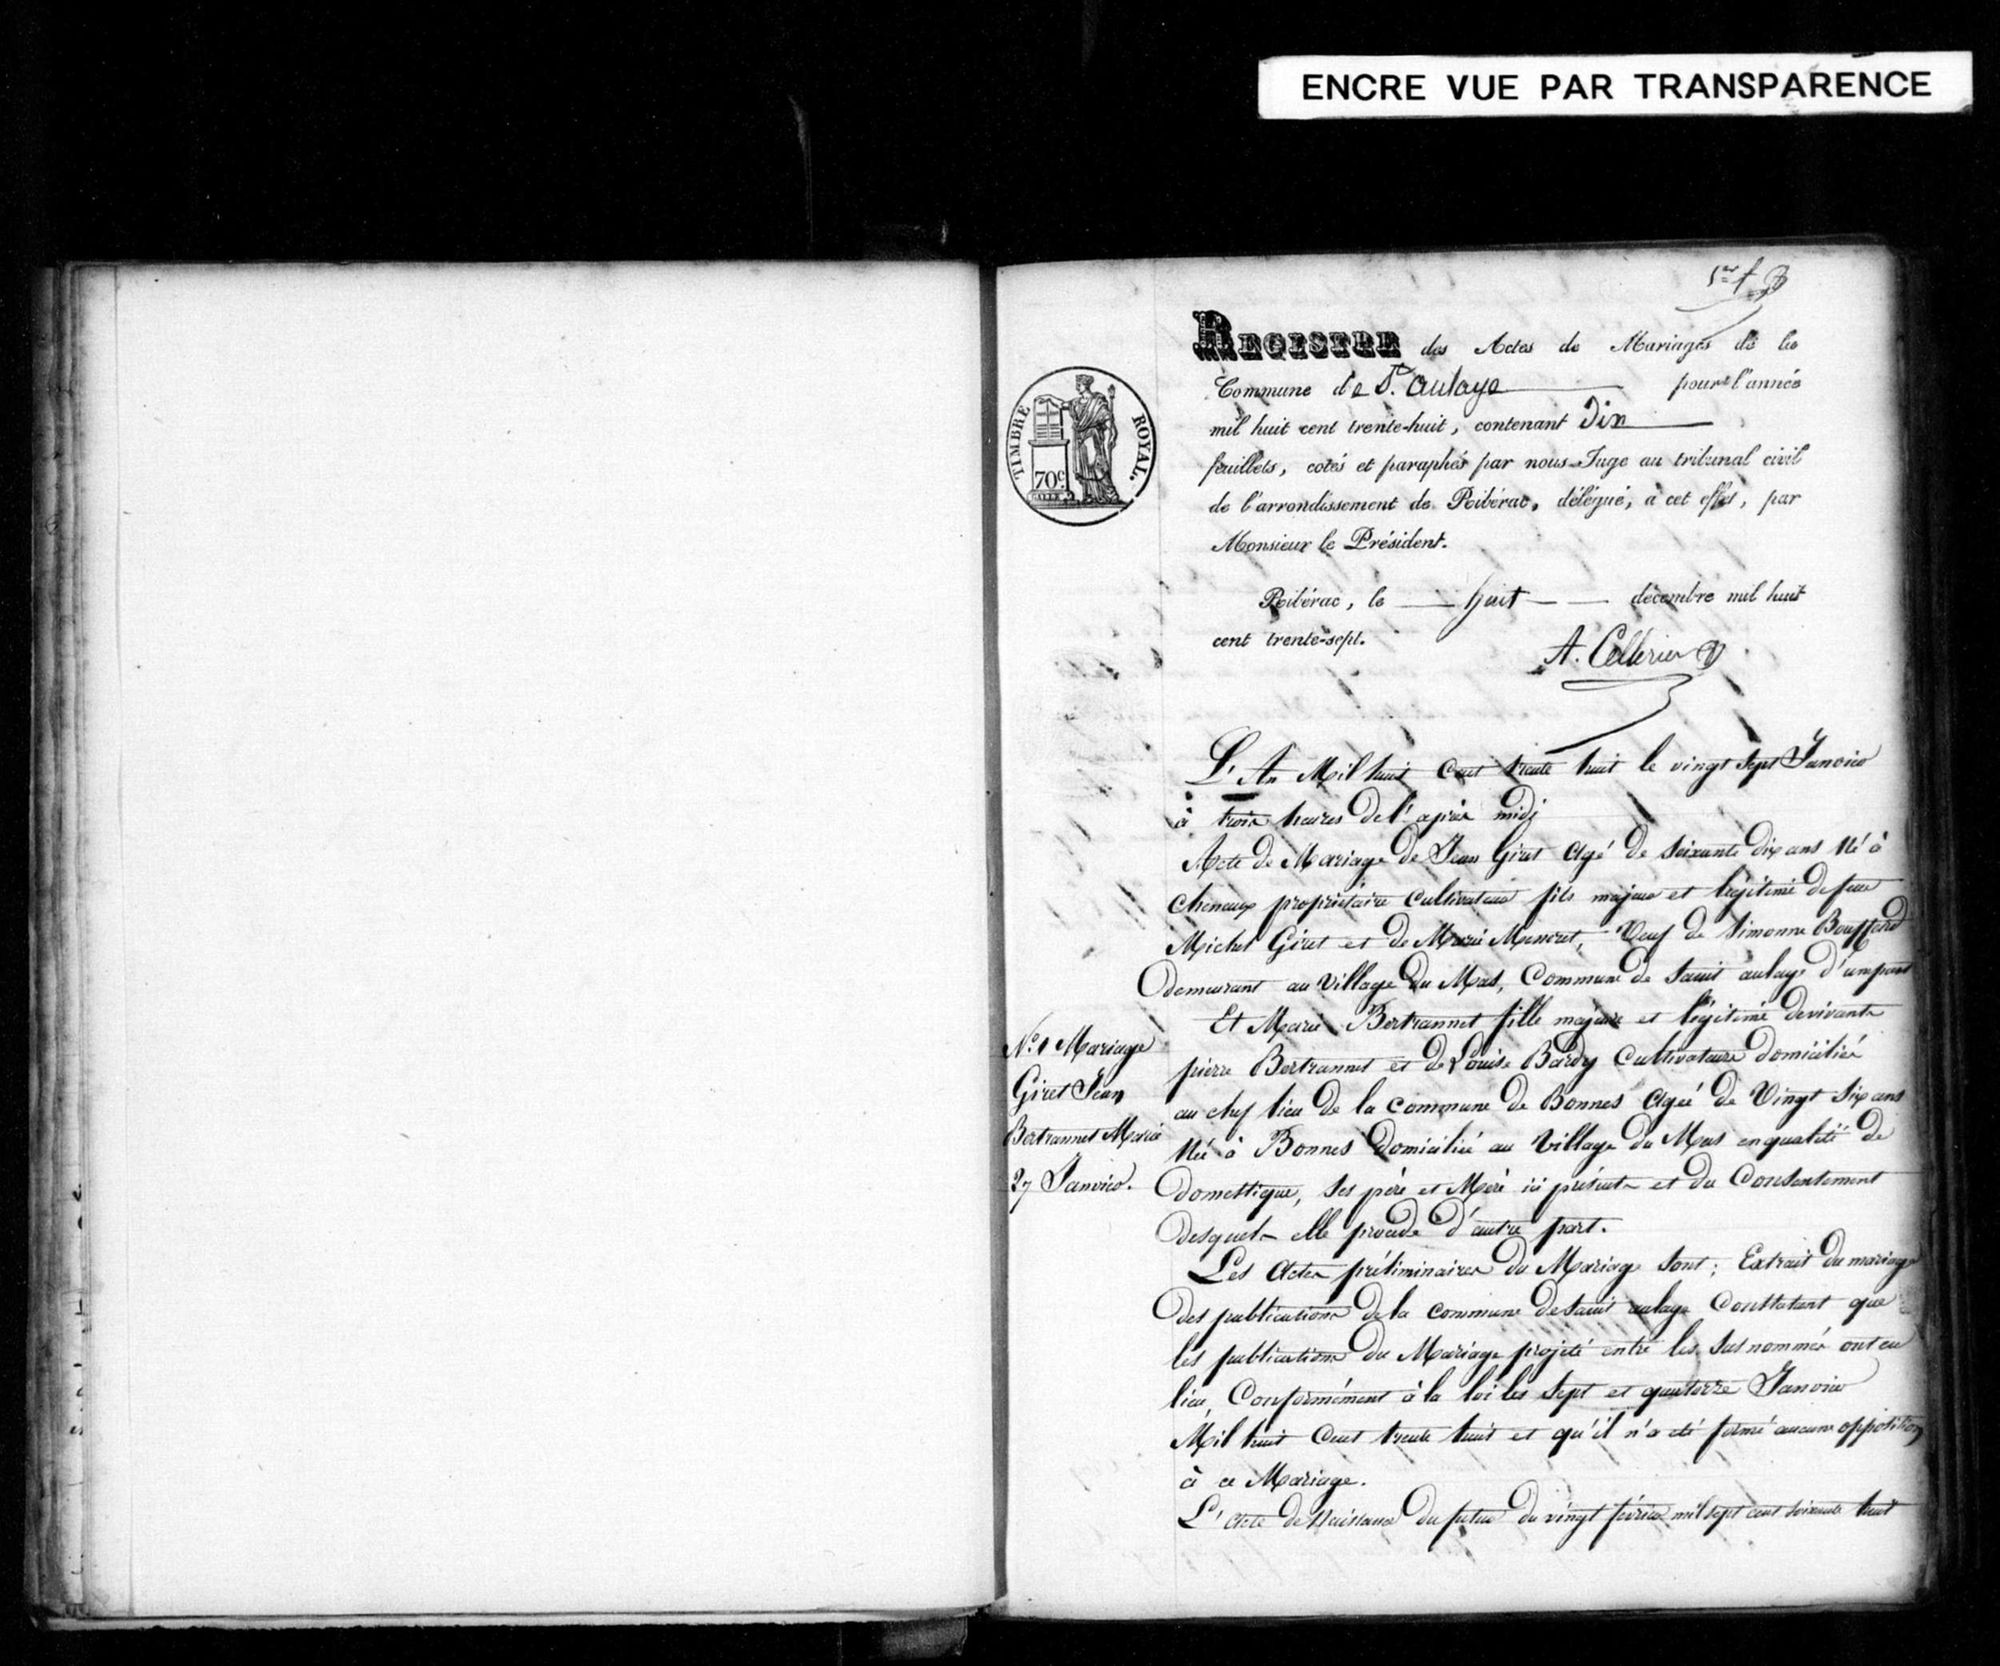 ENCRE VUE PAR TRANSPARENCE
1er f
REGISTRE des Actes de Mariages de la
Commune de St. aulaye pour l'année
mil huit cent trente-huit, contenant Dix
feuillets, cotés et paraphés par nous Juge au tribunal civil
de l'arrondissement de Ribérac, délégué, à cet effet, par
Monsieur le Président.
TIMBRE ROYAL.
70c
Ribérac, le huit décembre mil huit
cent trente-sept.
A. Cellerier
L'An Mil huit Cent trente huit le vingt Sept Janvier
à trois heures de l'après midi
Acte de Mariage de Jean Giret Agé de Soixante dix ans Né à
Chenaux propriétaire Cultivateur fils majeur et légitime de feu
Michel Giret et de Marie Mencret, Veuf de Simonne Bouffard
demeurant au Village du Mas, Commune de Saint aulaye d'une part
Et Marie Bertrannet fille majeure et légitime de vivants
pierre Bertrannet et de Louise Bardy Cultivateurs domiciliés
au chef lieu de la Commune de Bonnes Agée de Vingt Six ans
Née à Bonnes domiciliée au Village du Mas en qualité de
domestique, Ses père et Mère ici présents et du Consentement
desquels elle procède d'autre part.
N.o 1 Mariage
Giret Jean
Bertrannet Marie
27 Janvier.
Les Actes préliminaires du Mariage Sont; Extrait du mariage
des publications de la commune de Saint aulaye Constatant que
les publications du Mariage projeté entre les Susnommés ont eu
lieu, Conformément à la loi les Sept et quatorze Janvier
Mil huit Cent trente huit et qu'il n'a été formé aucune opposition
à ce Mariage.
L'Acte de Naissance du futur du vingt février mil sept cent soixante huit